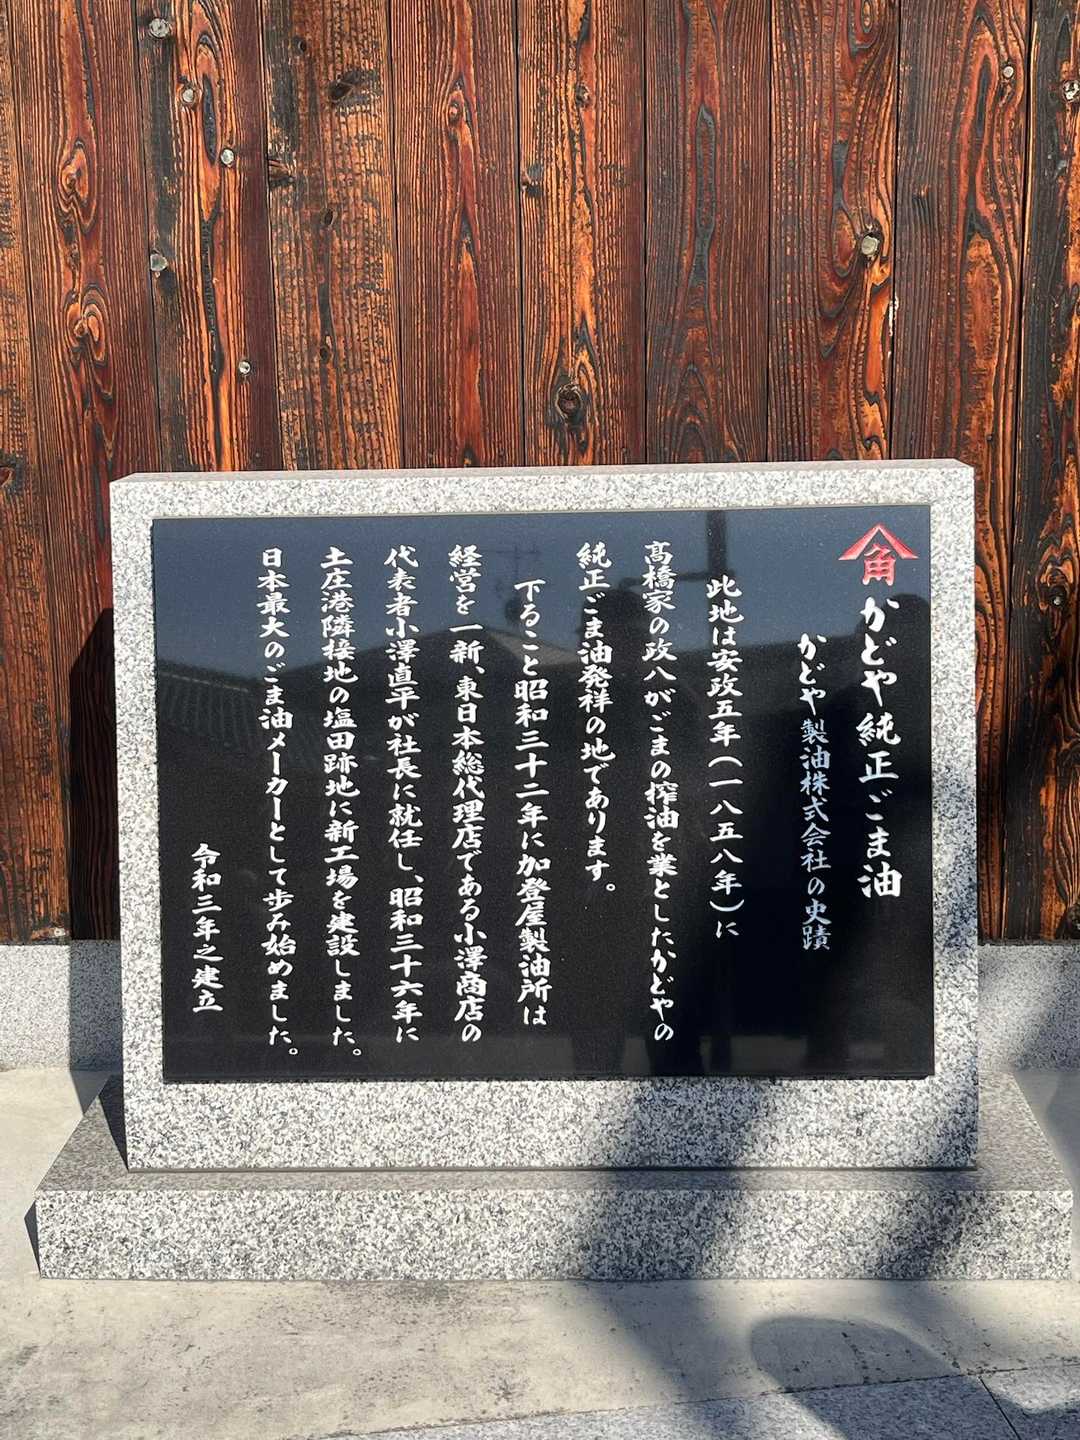 角 かどや純正ごま油
かどや製油株式会社の史蹟
此地は安政五年(一八五八年)に
髙橋家の政八がごまの搾油を業としたかどやの
純正ごま油発祥の地であります。
下ること昭和三十二年に加登屋製油所は
経営を一新、東日本総代理店である小澤商店の
代表者小澤直平が社長に就任し、昭和三十六年に
土庄港隣接地の塩田跡地に新工場を建設しました。
日本最大のごま油メーカーとして歩み始めました。
令和三年之建立